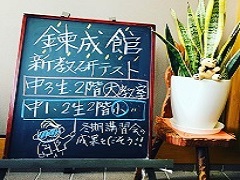 錬成館
新教研テスト
中3生2階大教室
中1・2生2階小〃
冬期講習会の
成果をだそう!!